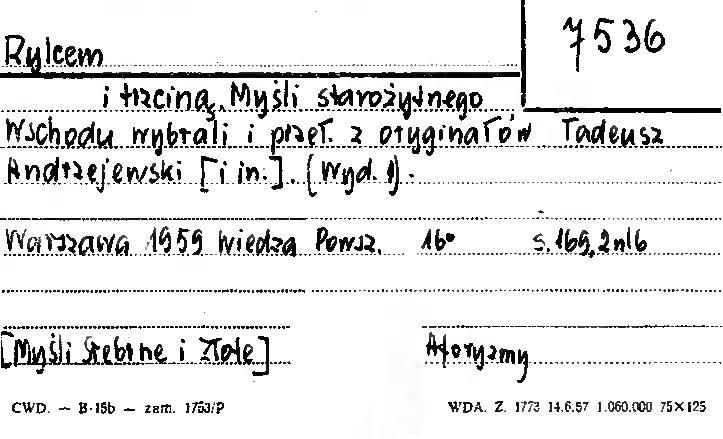 7536
Rylcem
i trzciną. Myśli starożytnego
Wschodu wybrali i przeł. z oryginałów Tadeusz
Andrzejewski [i in.]. (Wyd. 1).
Warszawa 1959 Wiedza Powsz. 16° s. 169, 2nlb
[Myśli srebrne i złote] Aforyzmy
CWD. — B-15b — zam. 1753/P WDA. Z. 1773 14.6.57 1.060.000 75×125